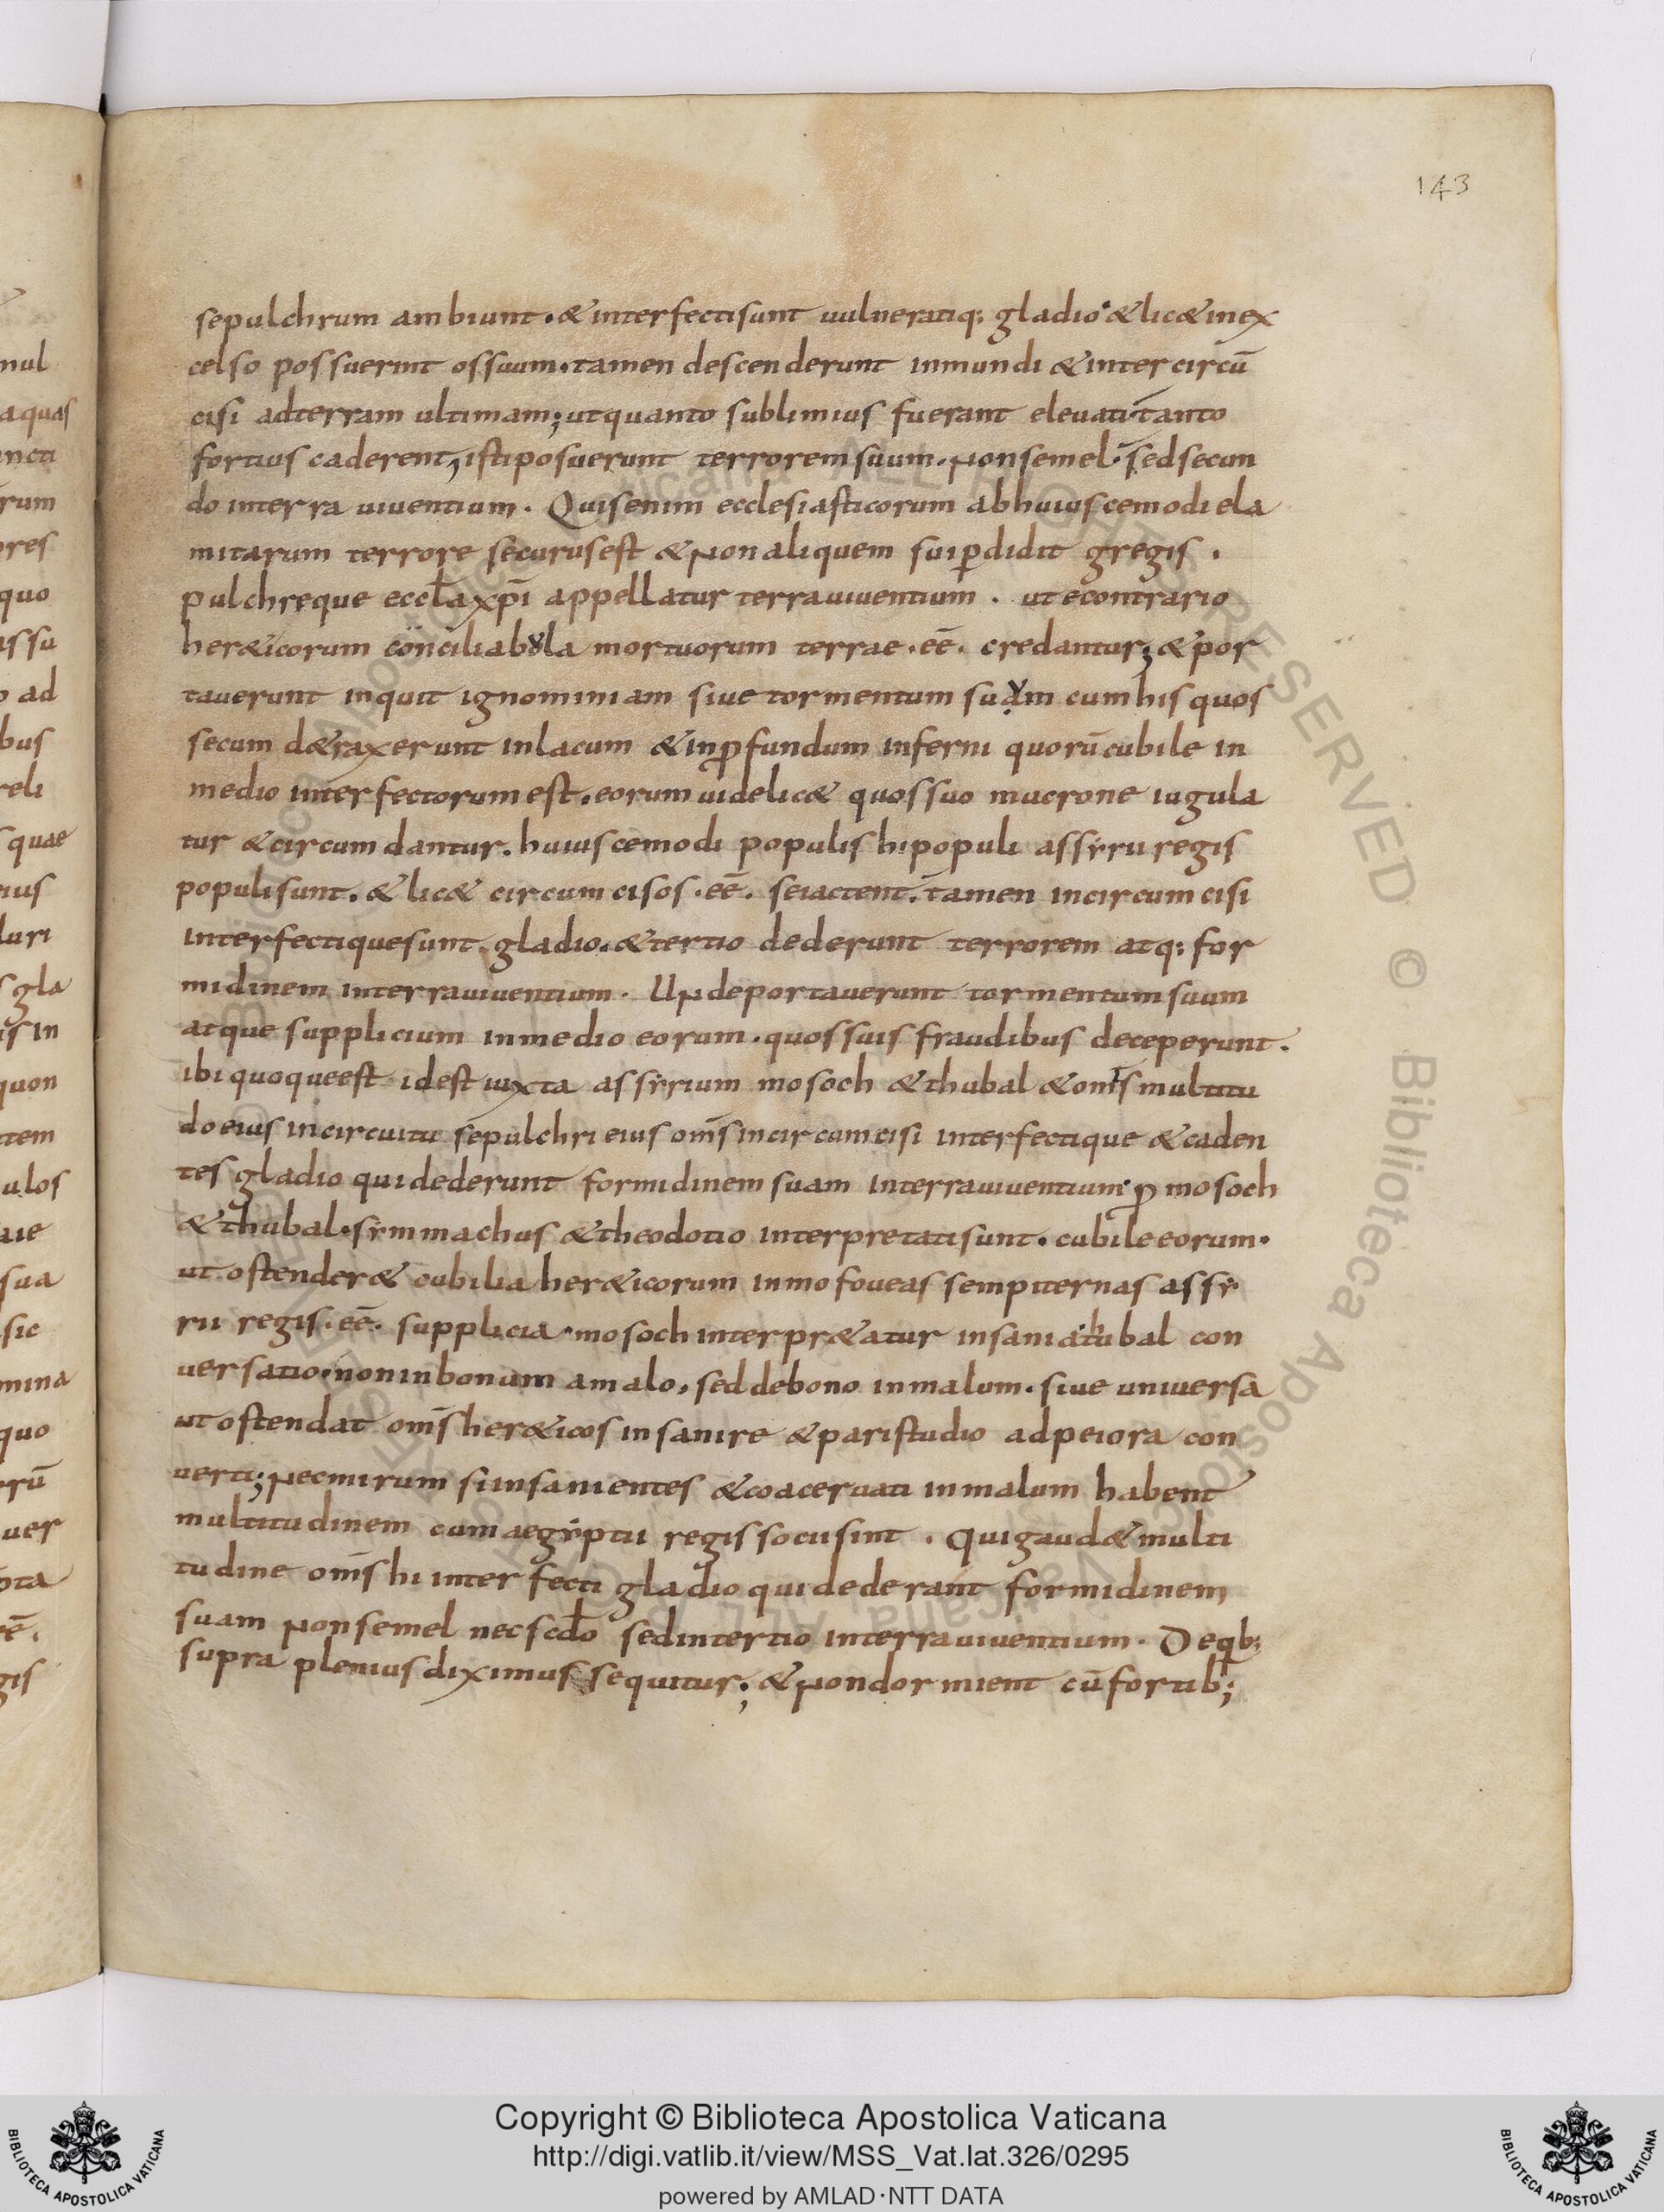 143
sepulchrum ambiunt. & interfecti sunt uulneratiq; gladio & lic& in ex
celso possuerint os suum. tamen descenderunt inmundi & intercircū
cisi ad terram ultimam; ut quanto sublimius fuerant eleuati tanto
fortius caderent, isti posuerunt terrorem suum. non semel. sed secun
do in terra uiuentium. Quis enim ecclesiasticorum ab huiuscemodi ela
mitarum terrore securus est & non aliquem sui ꝑdidit gregis.
pulchreque eccła xp̄i appellatur terra uiuentium. ut e contrario
her&icorum conciliabula mortuorum terrae. eē. credantur; & por
tauerunt inquit ignominiam siue tormentum suum cum his quos
secum d&raxerunt in lacum & in ꝓfundum inferni quorū cubile in
medio interfectorum est. eorum uidelic& quos suo mucrone iugula
tur & circumdantur. huiuscemodi populis hi populi assyrii regis
populi sunt. & lic& circumcisos. eē. se iactent. tamen incircumcisi
interfectique sunt. gladio. & tertio dederunt terrorem atq; for
midinem in terra uiuentium. Unde portauerunt tormentum suum
atque supplicium in medio eorum. quos suis fraudibus deceperunt.
ibi quoque est id est iuxta assyrium mosoch & thubal & om̄s multitu
do eius in circuitu sepulchri eius om̄s incircumcisi interfectique & caden
tes gladio qui dederunt formidinem suam in terra uiuentium. ꝓ mosoch
& thubal. symmachus & theodotio interpretati sunt. cubile eorum.
ut ostender& cubilia her&icorum inmo foueas sempiternas assy
rii regis. eē. supplicia. mosoch interpr&atur insania thubal con
uersatio. non in bonum a malo, sed de bono in malum. siue uniuersa
ut ostendat om̄s her&icos insanire & pari studio ad peiora con
uerti; nec mirum si insanientes & coaceruati in malum habent
multitudinem cum aegyptii regis socii sint. qui gaud& multi
tudine om̄s hi interfecti gladio qui dederant formidinem
suam non semel nec scdo sed in tertio in terra uiuentium. De qb;
supra plenius diximus sequitur; & non dormient cū fortib;
nul
aquas
ncti
rum
ores
quo
assu
o ad
bus
reli
s quae
eius
luri
s gla
is in
quon
tem
ulos
sua
sic
mina
quo
erū
uer
gis
Copyright © Biblioteca Apostolica Vaticana
http://digi.vatlib.it/view/MSS_Vat.lat.326/0295
powered by AMLAD·NTT DATA
BIBLIOTECA APOSTOLICA VATICANA
BIBLIOTECA APOSTOLICA VATICANA